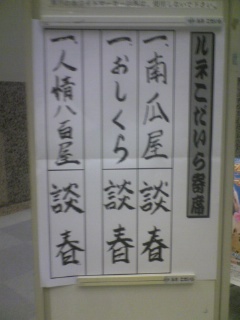 ルネこだいら寄席
一、南瓜屋 談春
一、おしくら 談春
一、人情八百屋 談春